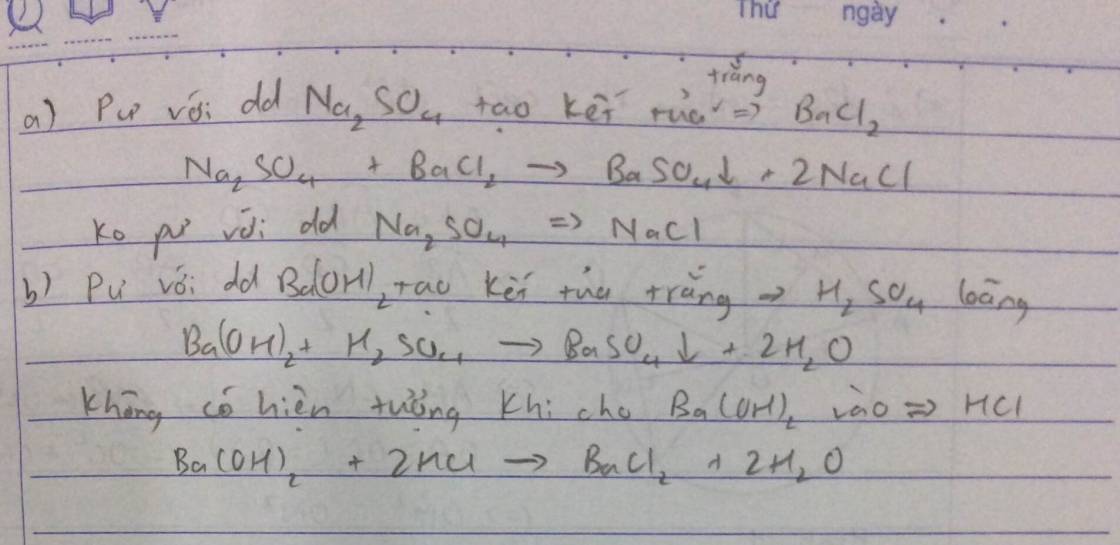 Thứ ngày . .
a) Pư với dd Na₂SO₄ tạo kết tủa trắng => BaCl₂
Na₂SO₄ + BaCl₂ → BaSO₄↓ + 2NaCl
Ko pư với dd Na₂SO₄ => NaCl
b) Pư với dd Ba(OH)₂ tạo kết tủa trắng => H₂SO₄ loãng
Ba(OH)₂ + H₂SO₄ → BaSO₄↓ + 2H₂O
Không có hiện tượng khi cho Ba(OH)₂ vào => HCl
Ba(OH)₂ + 2HCl → BaCl₂ + 2H₂O